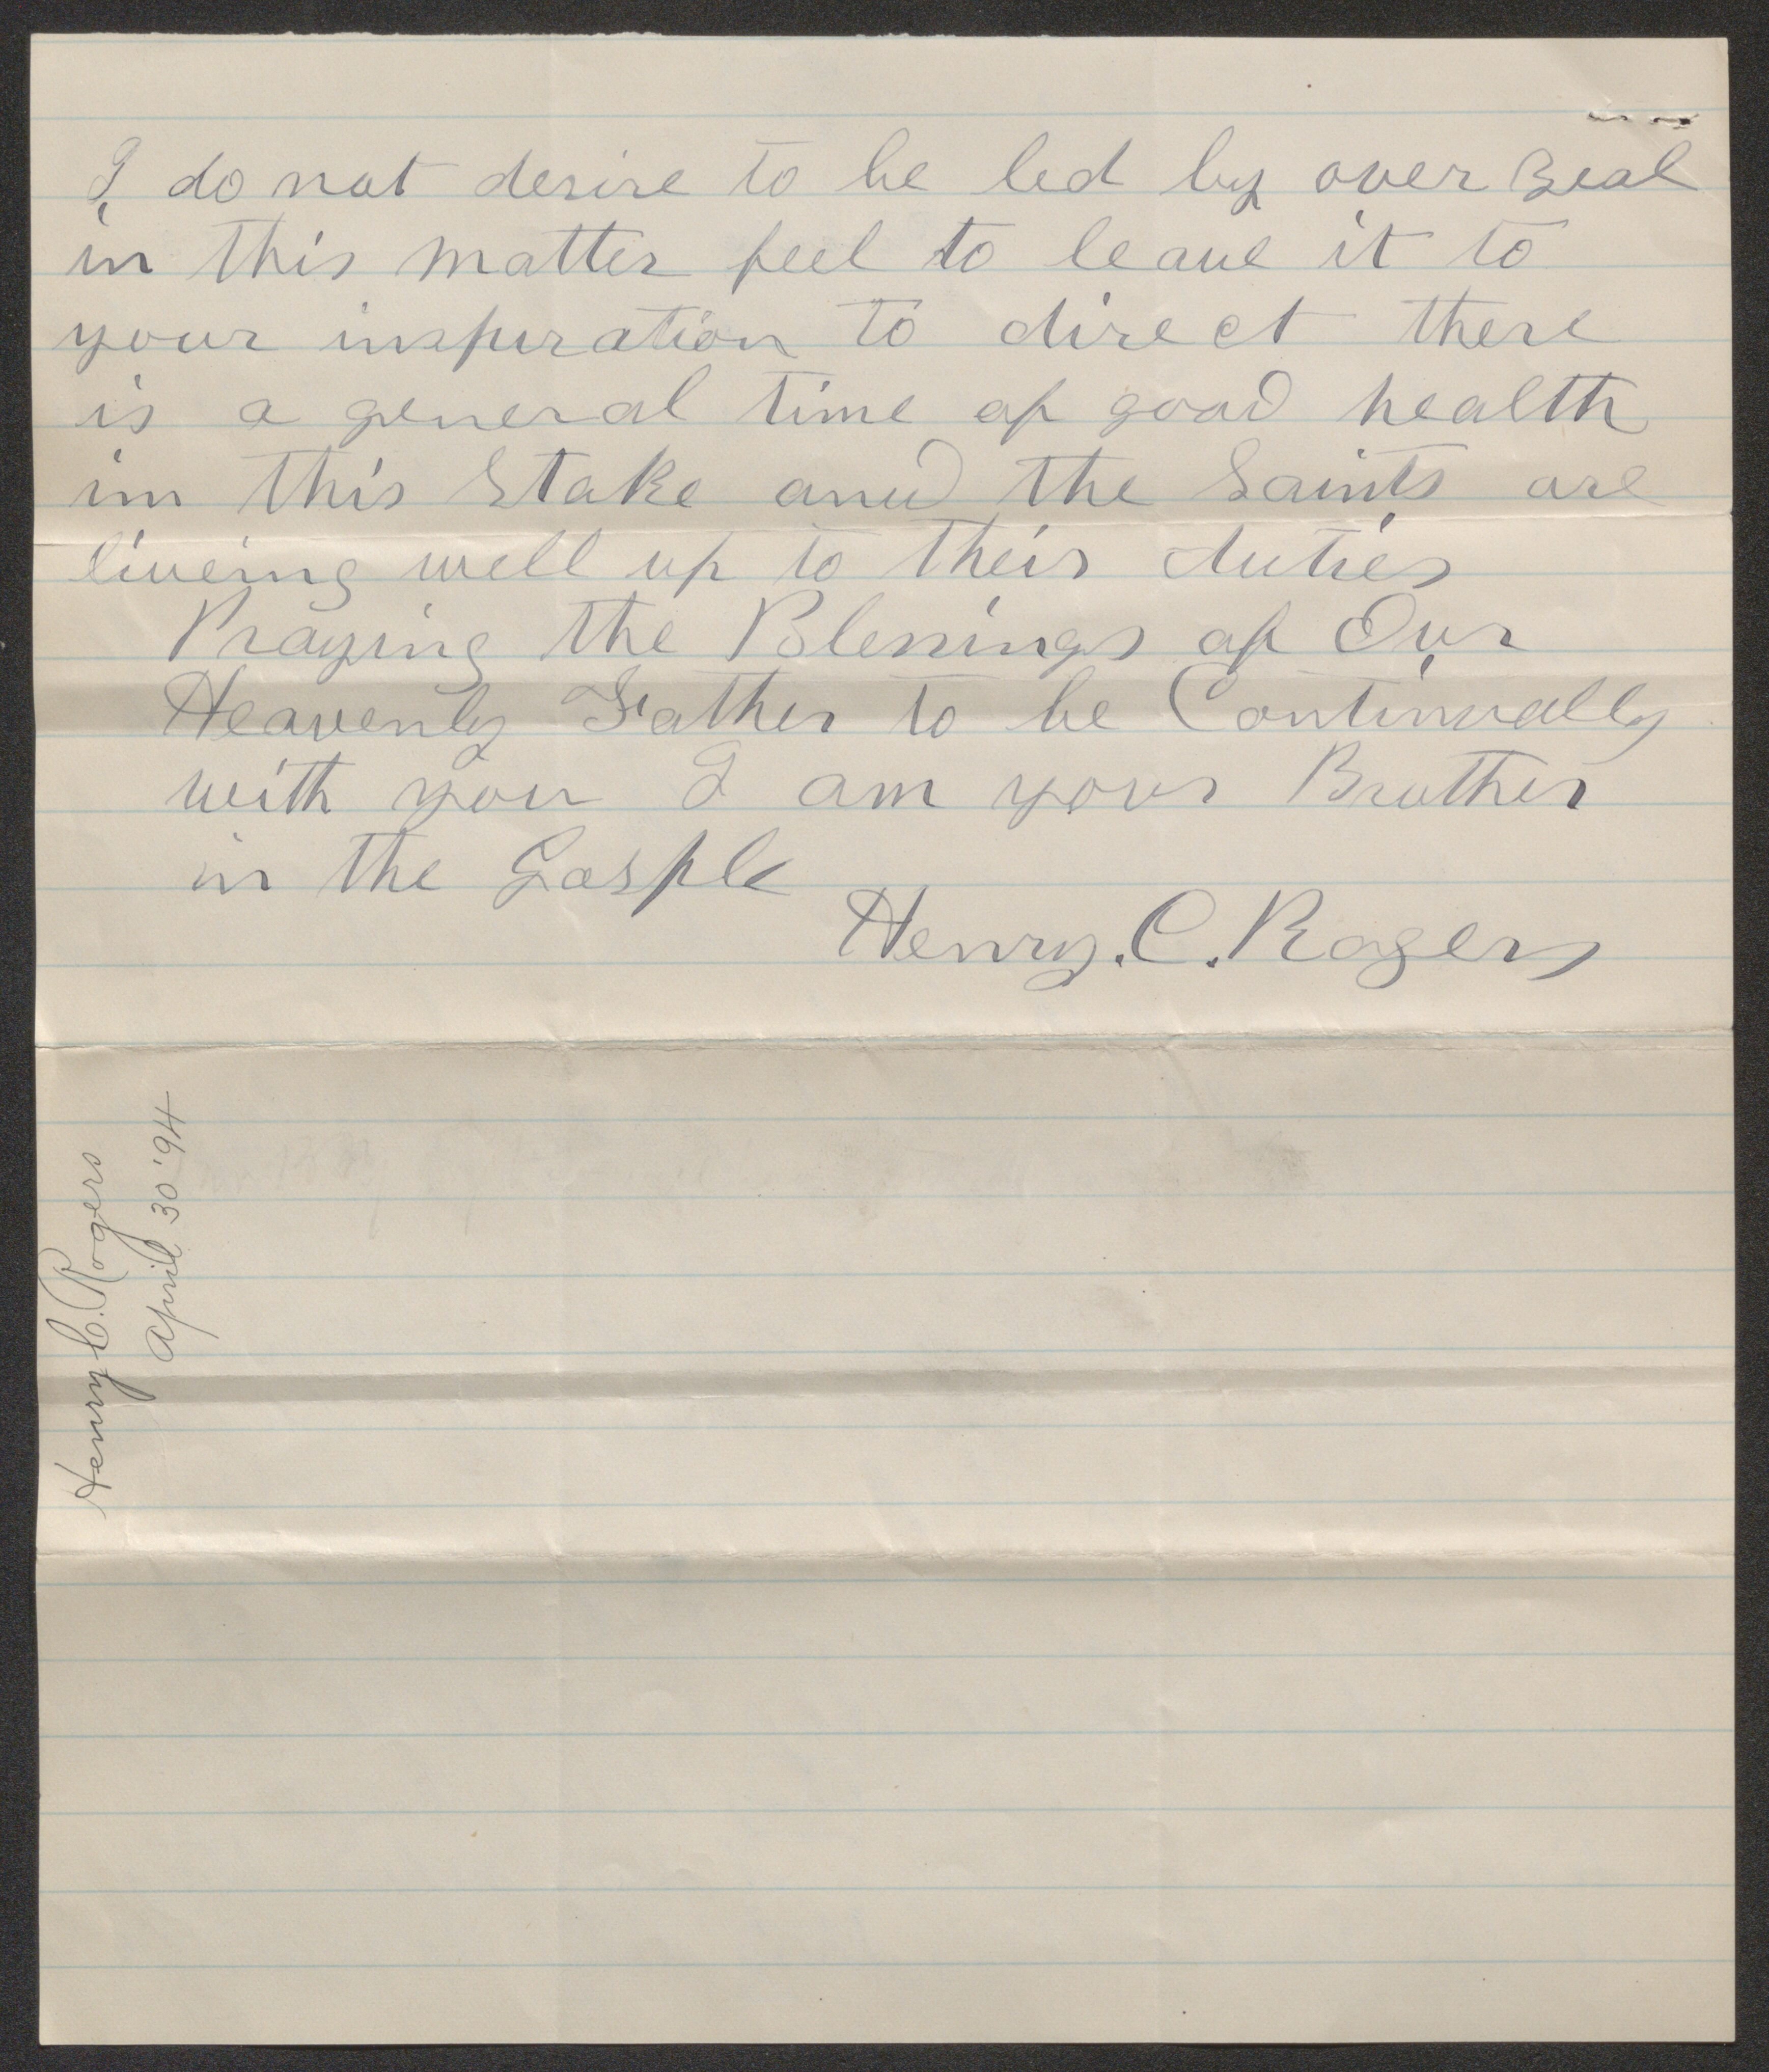 I do not desire to be led by over zeal
in this matter feel to leave it to
your inspiration to direct there
is a general time of good health
im this Stake and the Saints are
liveing well up to their duties
Praying the Blessings of Our
Heavenly Father to be Continually
with you I am your Brother
in the Gosple
Henry. C. Rogers
Henry C. Rogers
April 30 '94